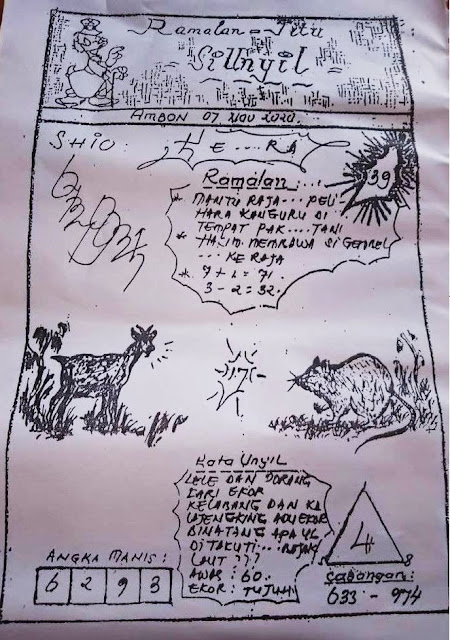 Ramalan - Jitu
Si Unyil
AMBON 07 NOV 2020.
SHIO:
HE....RA
39
Ramalan:...
* MANTU RAJA... PELI-
HARA KANGURU DI
TEMPAT PAK.... TANI
* HALIM MEMBAWA SI GEMBEL
... KE RAJA
* 7 + 1 = 71.
3 - 2 = 32.
17-
Kata Unyil
LELE DAN DORANG
CARI EKOR
KELABANG DAN KA
LAJENGKING ADU EKOR
BINATANG APA YG
DITAKUTI...
LAUT ???
AWAS: 60..
EKOR: TUJUH
4
8
ANGKA MANIS:
6 2 9 3
Cabangan:
633 - 974